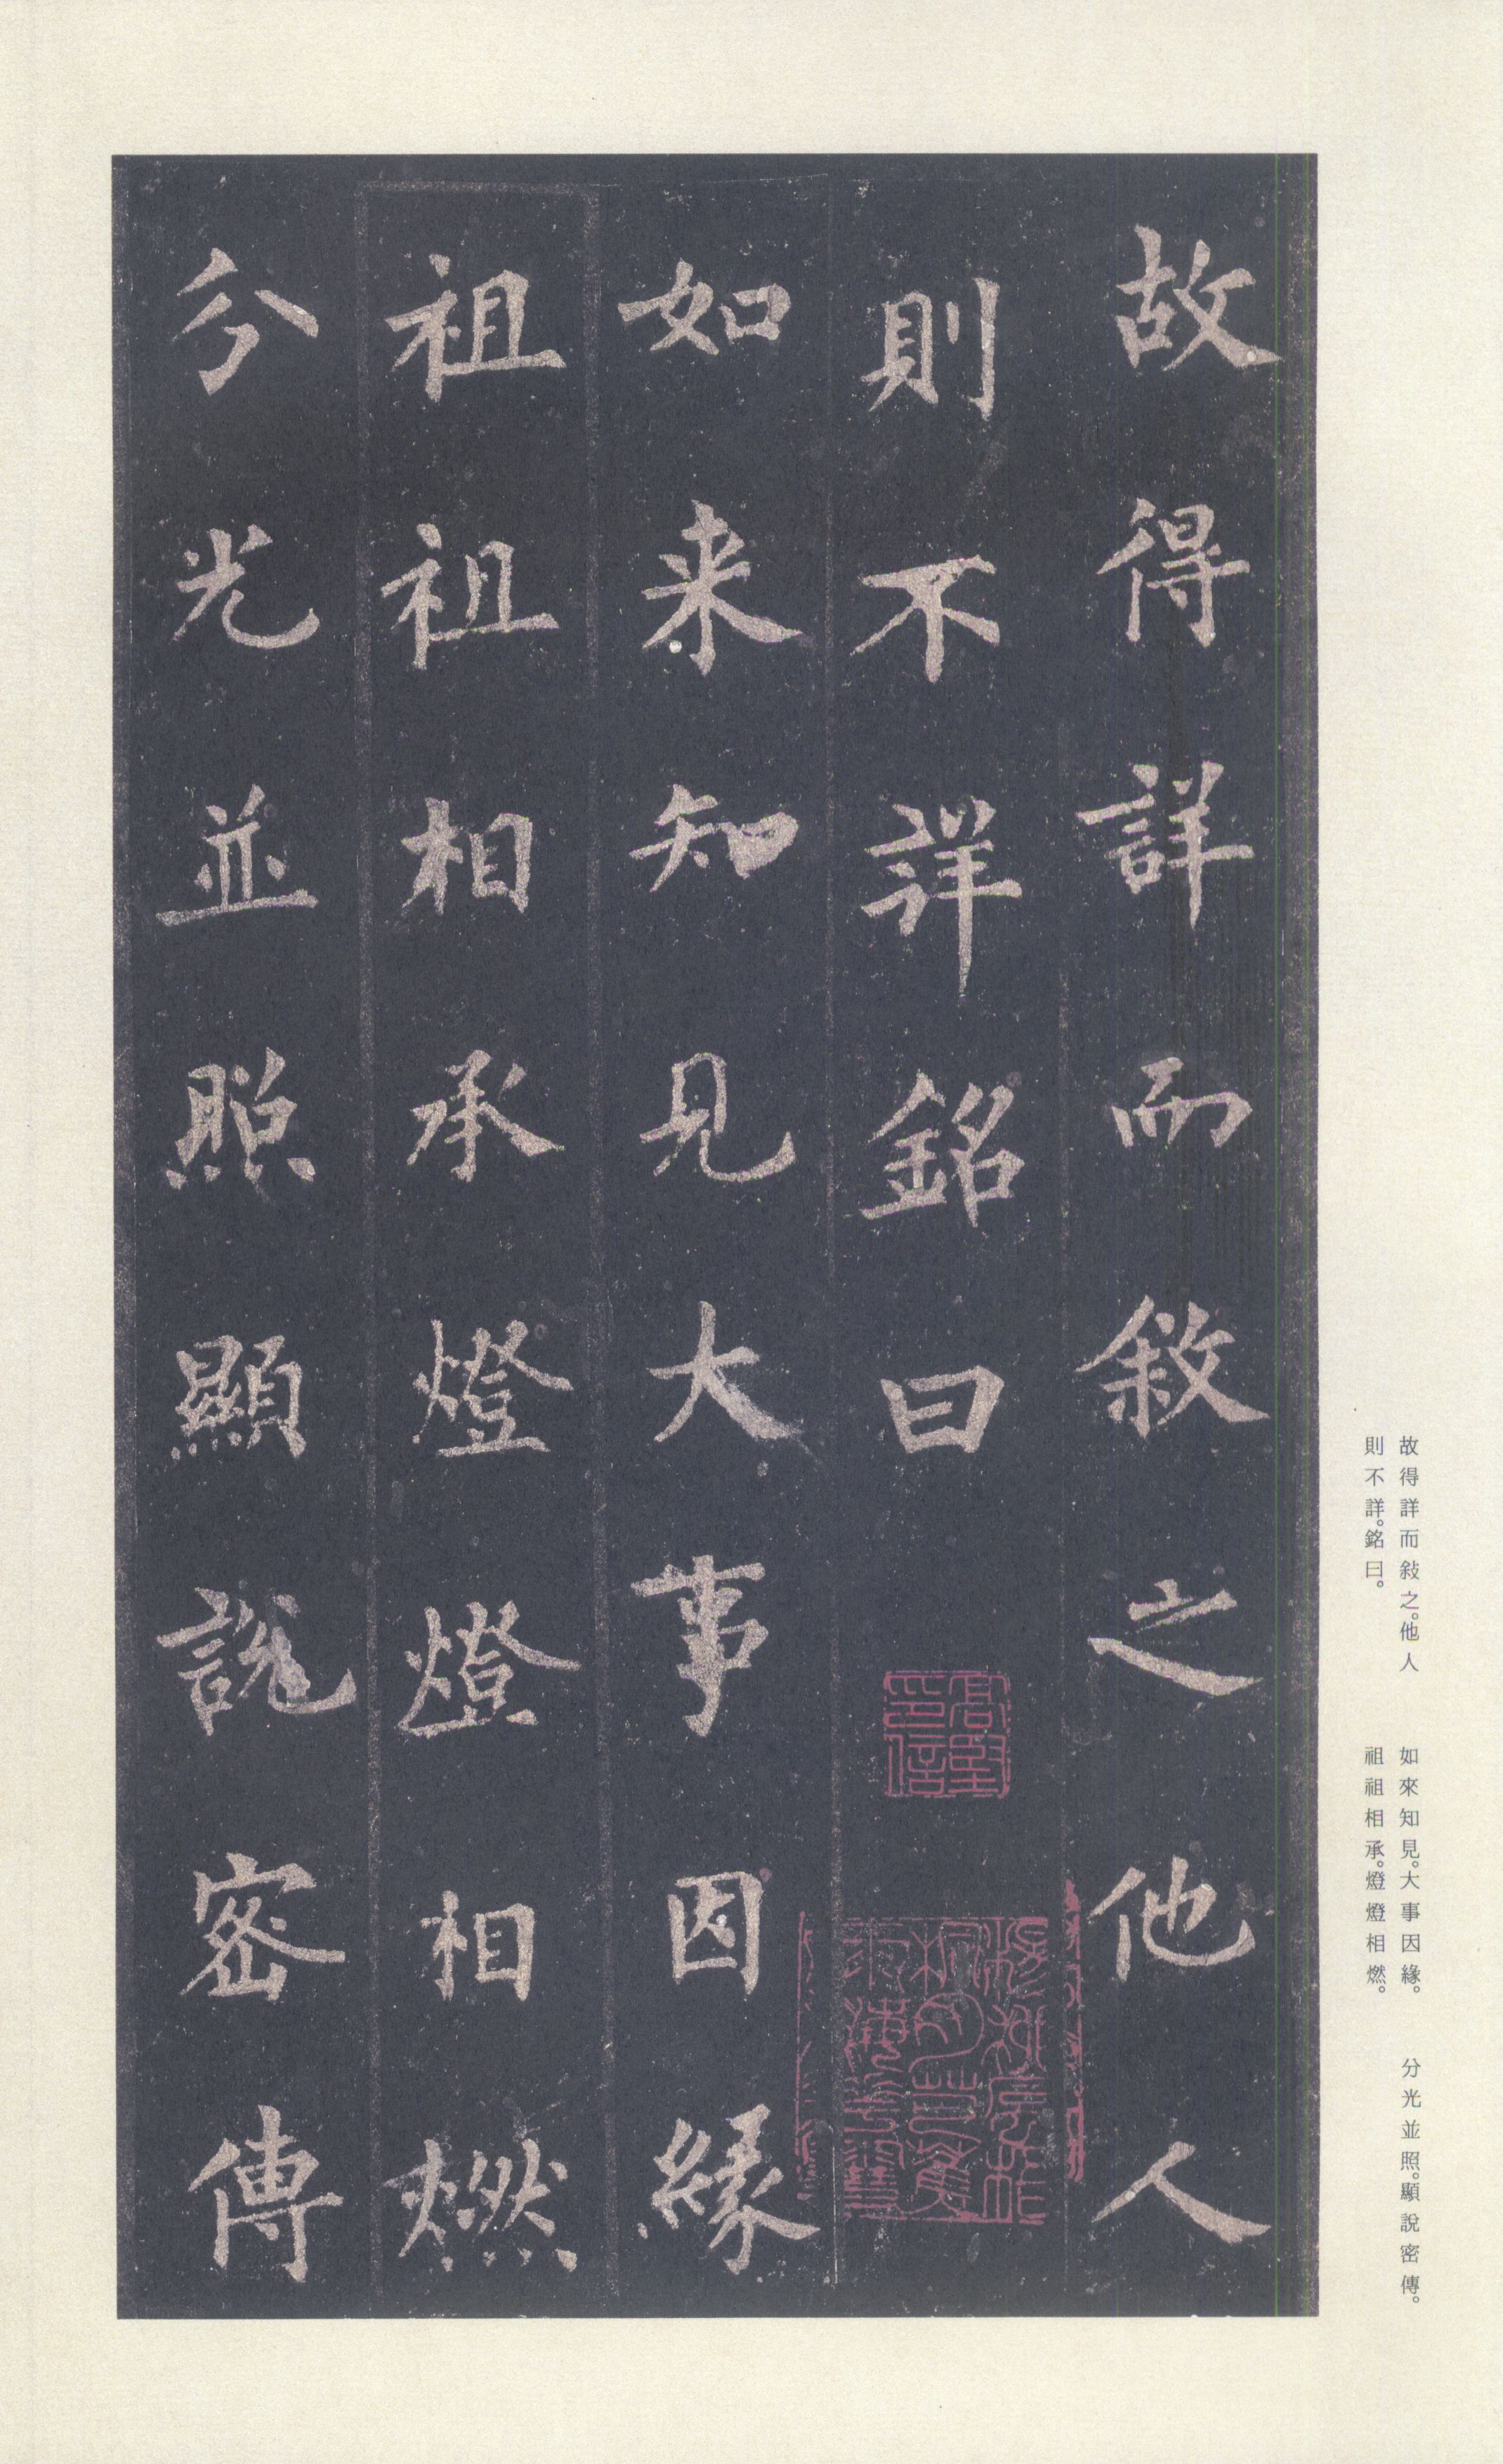 故得詳而敘之他人
則不詳銘曰
如来知見大事因緣
祖祖相承燈燈相燃
分光並照顯說密傳
故得詳而敍之。他人
則不詳。銘曰。
如來知見。大事因緣。
祖祖相承。燈燈相燃。
分光並照。顯說密傳。